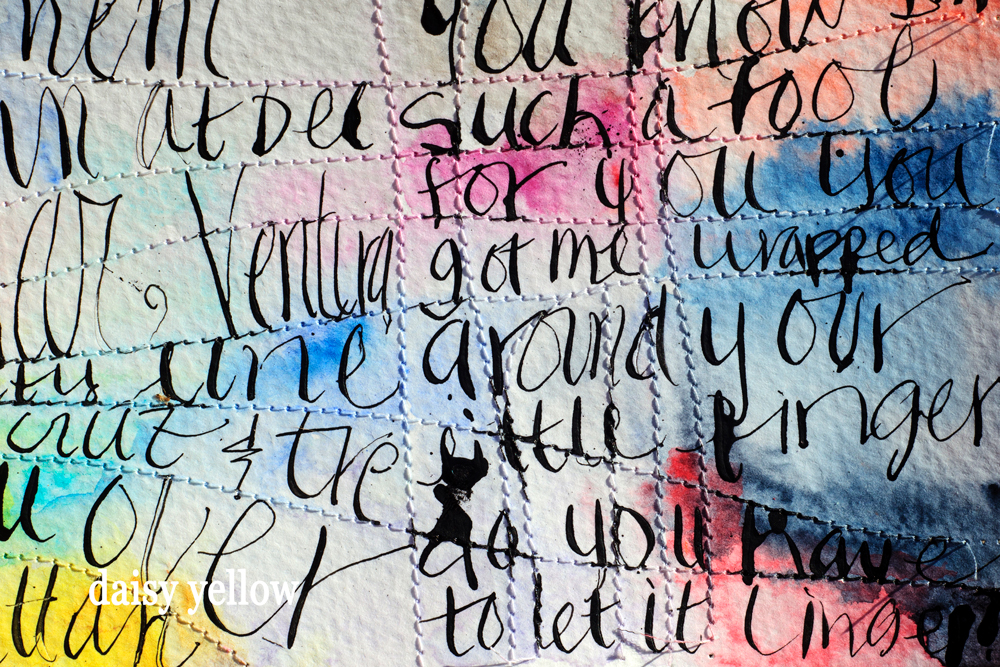 you know
such a fool
for you you
Ventura got me wrapped
around your
little finger
out & the
do you have
over
to let it linger
daisy yellow